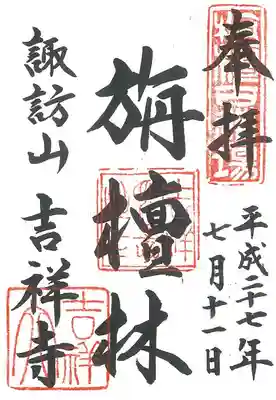 奉拝
平成二十七年
七月十一日
旃檀林
諏訪山 吉祥寺